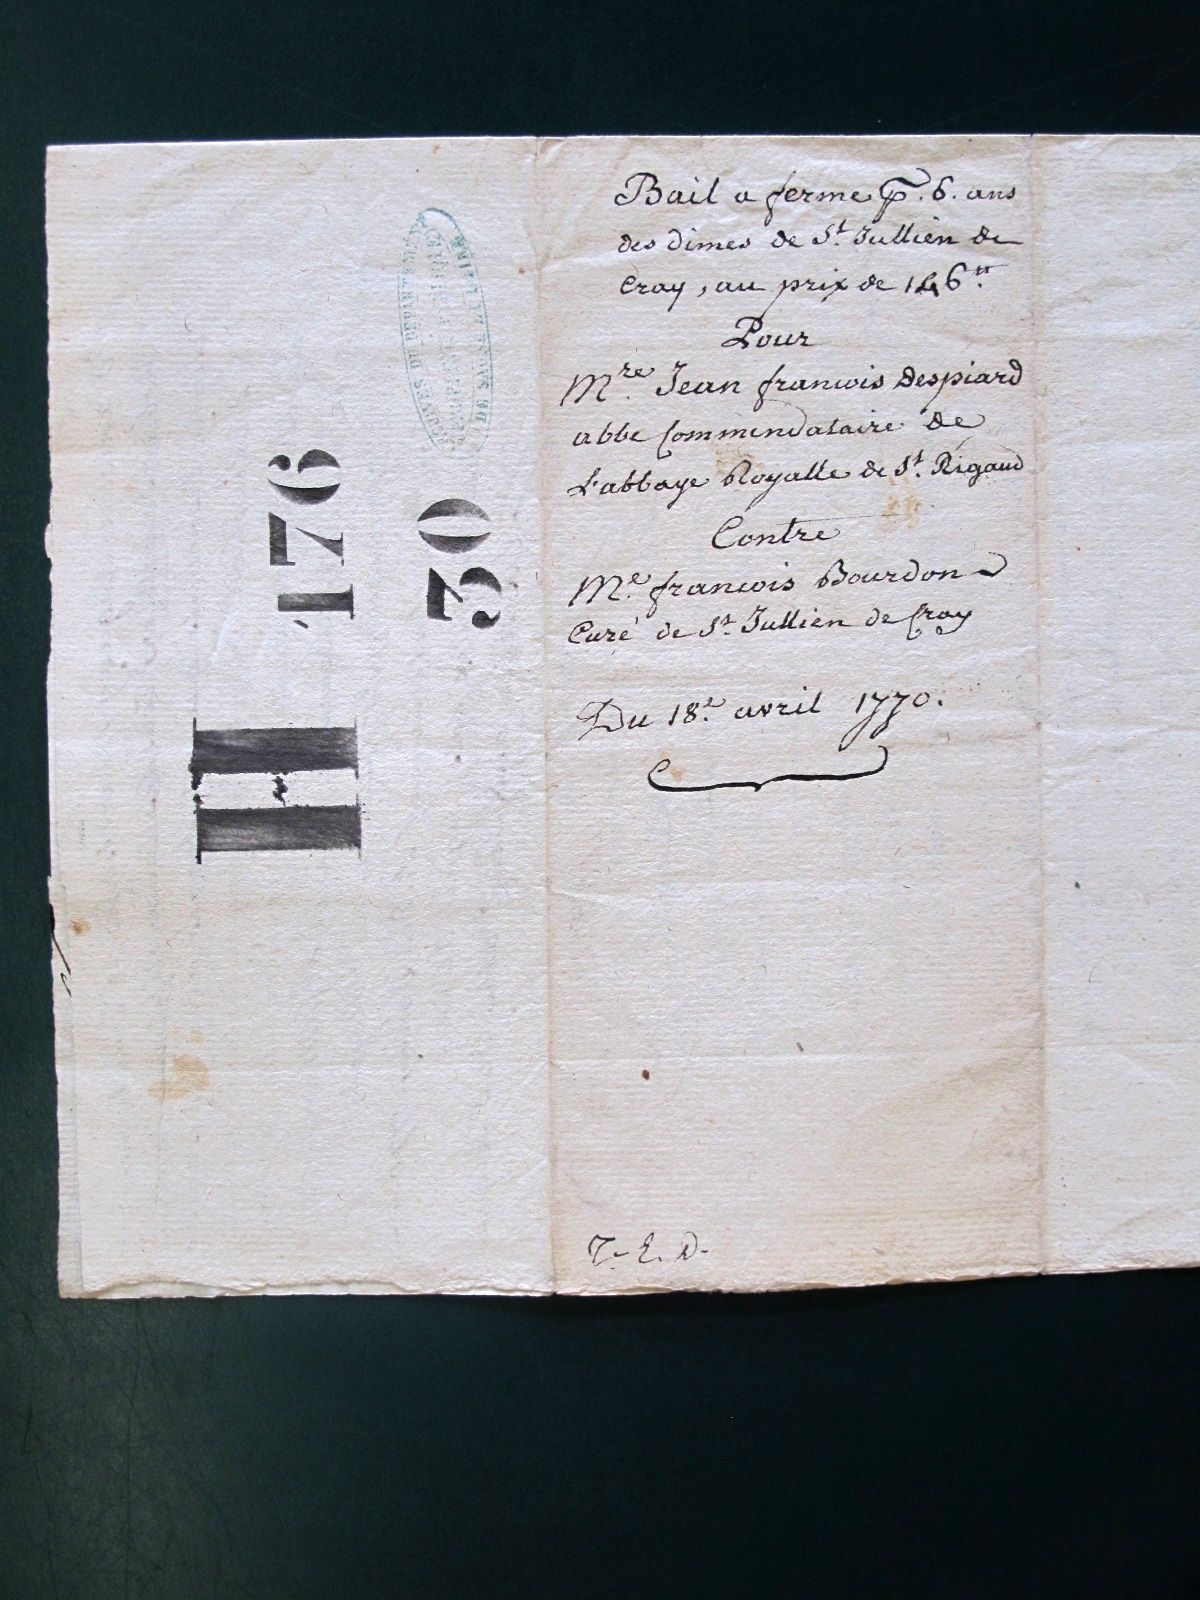 Bail a ferme p. 6. ans
des dimes de St Jullien de
Cray, au prix de 146 tt
Pour
Mre Jean francois Despiard
abbe Commendataire de
L'abbaye Royalle de St. Rigaud
Contre
Me. francois Bourdon
Curé de St Jullien de Cray
Du 18e. avril 1770.
T. E. D.
H 176
30
DU DEPARTEMENT
DE SAONE ET LOIRE